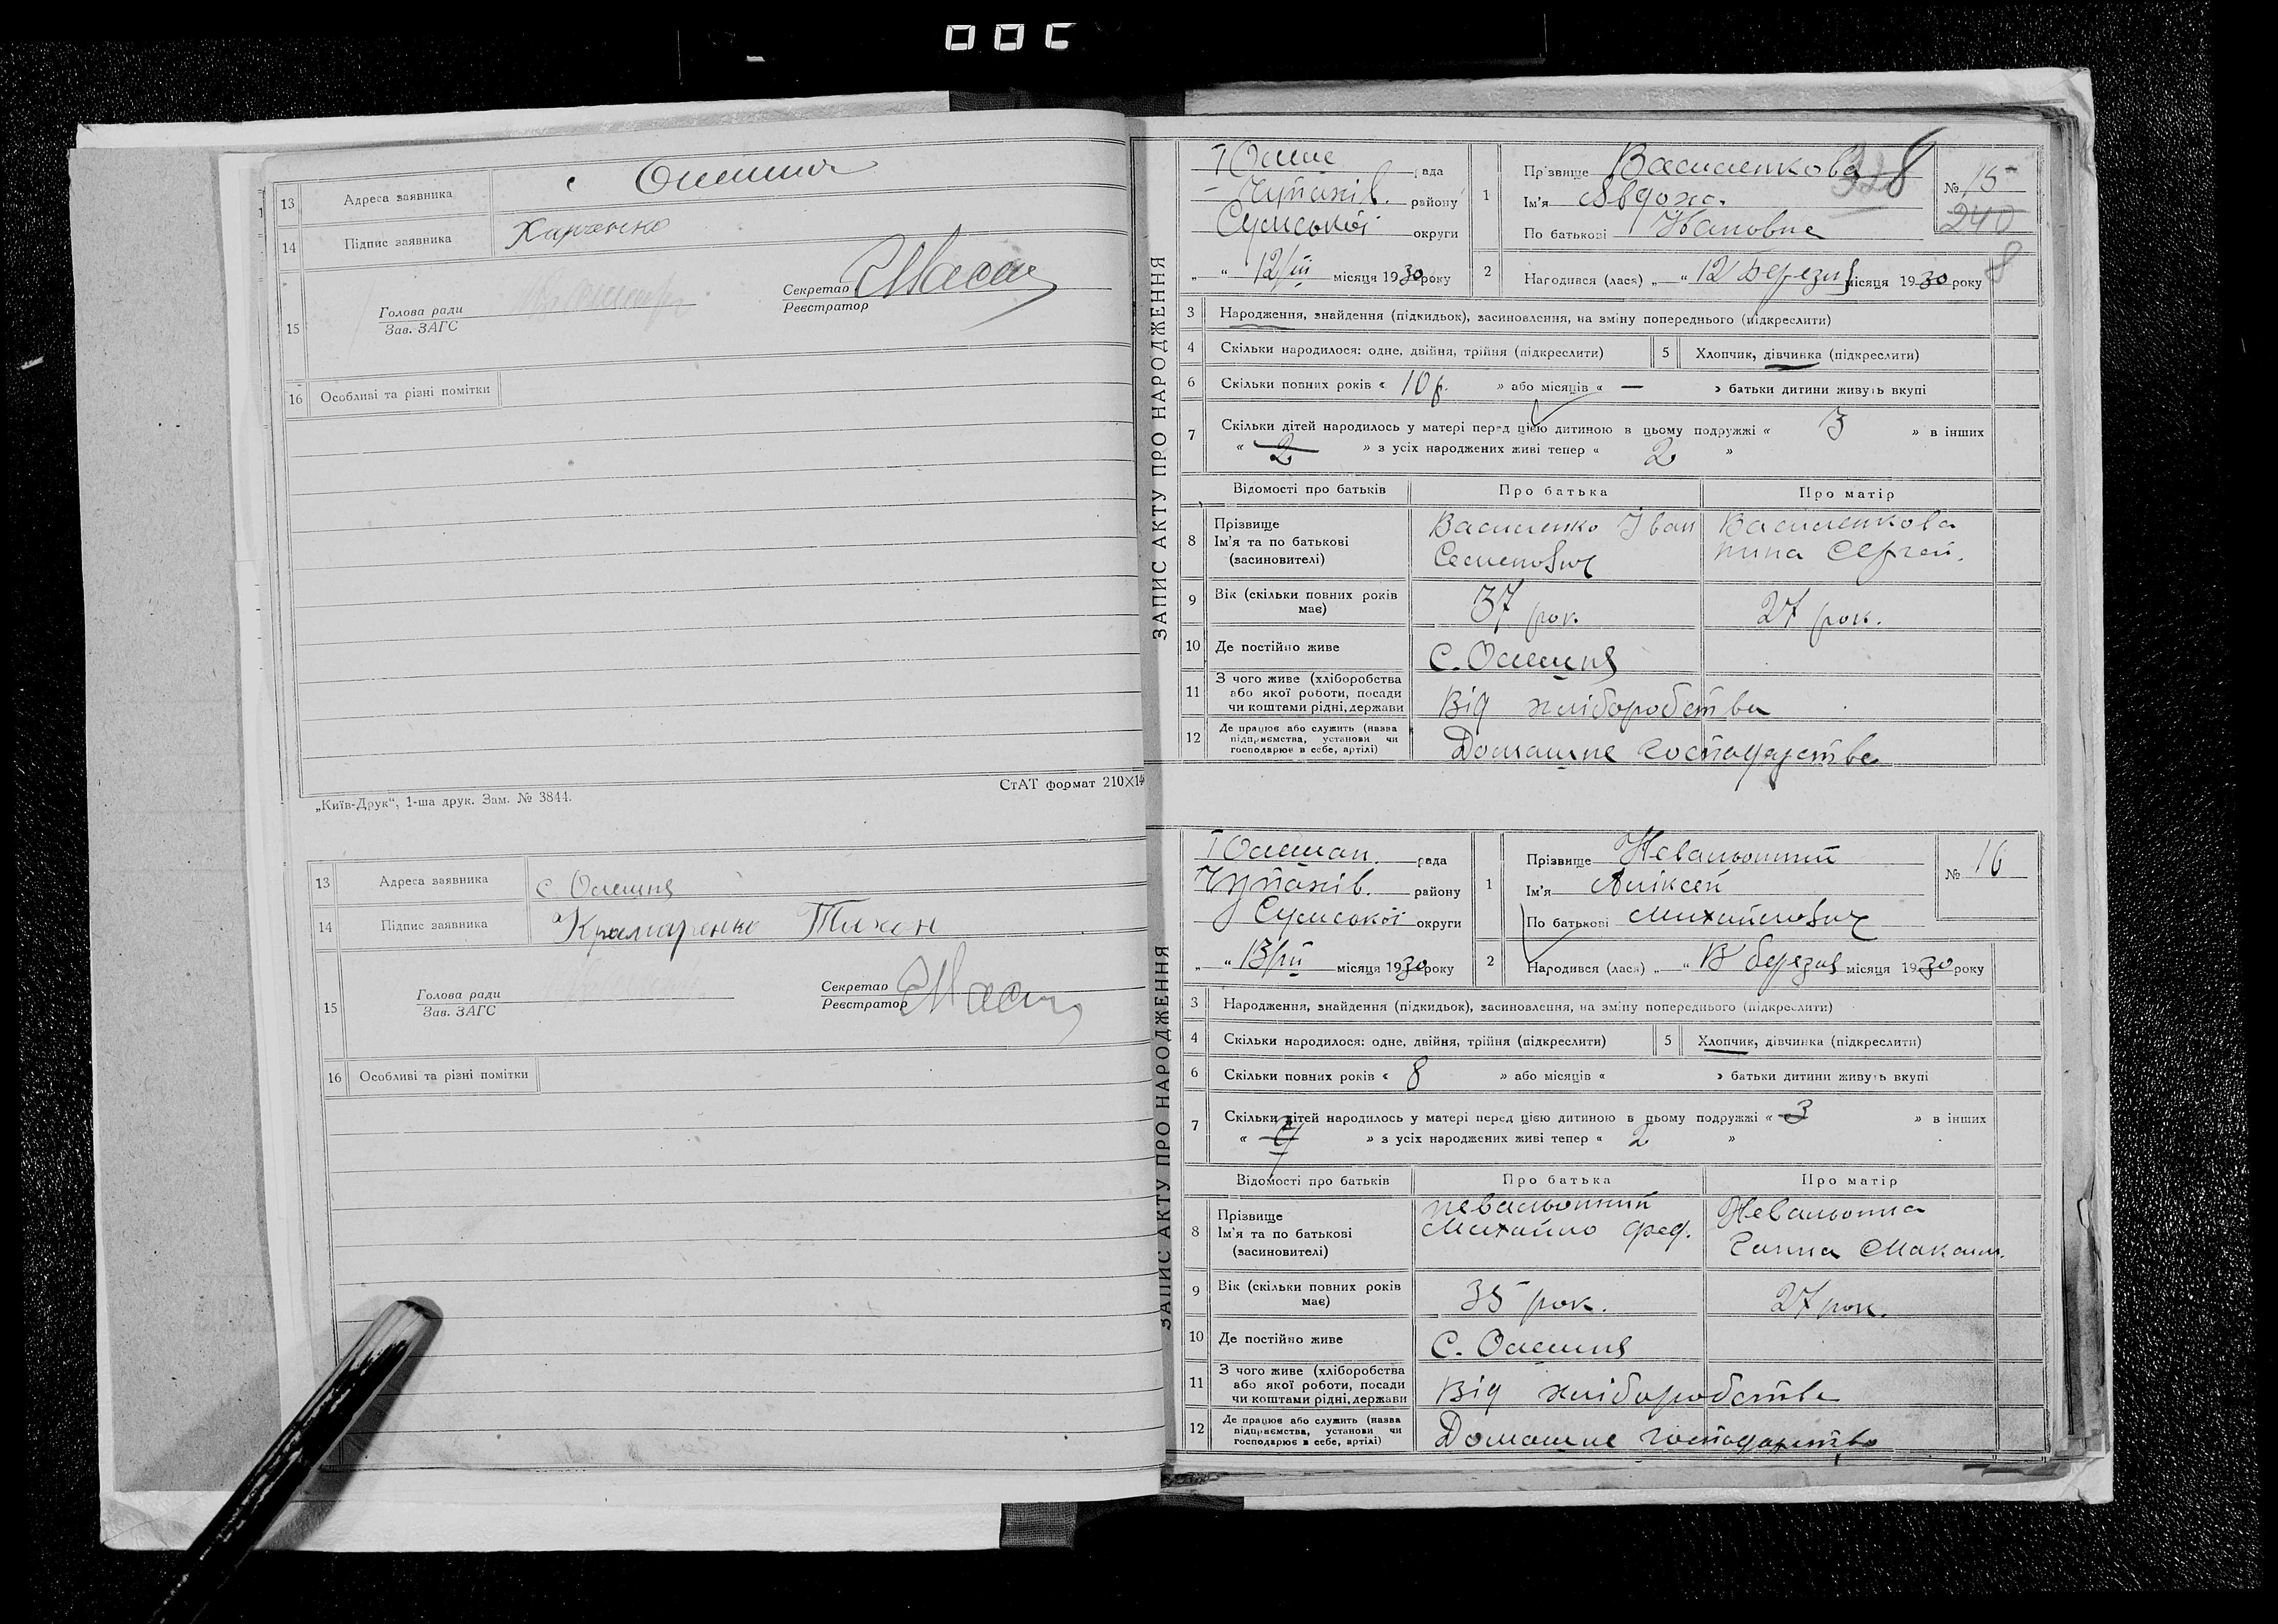 13 Адреса заявника с Олешня
14 Підпис заявника Харченко
15 Голова ради
Зав. ЗАГС
Секретар
Реєстратор
16 Особливі та різні помітки
„Київ-Друк“, 1-ша друк. Зам. № 3844.
СтАТ формат 210×14
13 Адреса заявника с. Олешня
14 Підпис заявника Крамаренко Тихон
15 Голова ради
Зав. ЗАГС
Секретар
Реєстратор
16 Особливі та різні помітки
ЗАПИС АКТУ ПРО НАРОДЖЕННЯ
рада
Чупахів. району
Сумської округи
„ “ 12/III місяця 1930 року
1 Прізвище Василенкова
Ім'я Явдоха
По батькові Івановна
№ 15
240
328
8
2 Народився (лася) „ “ 12 Березня місяця 1930 року
3 Народження, знайдення (підкидьок), засиновлення, на зміну попереднього (підкреслити)
4 Скільки народилося: одне, двійня, трійня (підкреслити) 5 Хлопчик, дівчинка (підкреслити)
6 Скільки повних років « 10 р. » або місяців « — » батьки дитини живуть вкупі
7 Скільки дітей народилось у матері перед цією дитиною в цьому подружжі « 3 » в інших
« 2 » з усіх народжених живі тепер « 2 »
Відомості про батьків Про батька Про матір
8 Прізвище Василенко Іван Василенкова
Ім'я та по батькові
(засиновителі) Семенович Сергей.
9 Вік (скільки повних років має) 37 рок. 27 рок.
10 Де постійно живе С. Олешня
11 З чого живе (хліборобства
або якої роботи, посади
чи коштами рідні, держави Від хліборобства
12 Де працює або служить (назва
підприємства, установи чи
господарює в себе, артілі) Домашне господарство
ЗАПИС АКТУ ПРО НАРОДЖЕННЯ
Олешан. рада
Чупахів. району
Сумської округи
„ “ 13/III місяця 1930 року
1 Прізвище Невальонний
Ім'я Аліксей
По батькові Михайлович
№ 16
2 Народився (лася) „ “ 13 березня місяця 1930 року
3 Народження, знайдення (підкидьок), засиновлення, на зміну попереднього (підкреслити)
4 Скільки народилося: одне, двійня, трійня (підкреслити) 5 Хлопчик, дівчинка (підкреслити)
6 Скільки повних років « 8 » або місяців « » батьки дитини живуть вкупі
7 Скільки дітей народилось у матері перед цією дитиною в цьому подружжі « 3 » в інших
« » з усіх народжених живі тепер « 2 »
Відомості про батьків Про батька Про матір
8 Прізвище Невальонний Невальонна
Ім'я та по батькові Михайло Фед.
(засиновителі) Ганна Максим.
9 Вік (скільки повних років має) 35 рок. 27 рок.
10 Де постійно живе С. Олешня
11 З чого живе (хліборобства
або якої роботи, посади
чи коштами рідні, держави Від хліборобства
12 Де працює або служить (назва
підприємства, установи чи
господарює в себе, артілі) Домашне господарство